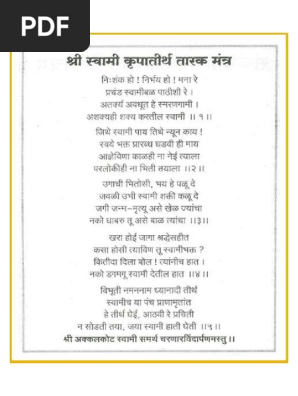 PDF
श्री स्वामी कृपातीर्थ तारक मंत्र
निःशंक हो ! निर्भय हो ! मना रे
प्रचंड स्वामीबळ पाठीशी रे ।
अतर्क्य अवधूत हे स्मरणगामी ।
अशक्यही शक्य करतील स्वामी ॥ १॥
जिथे स्वामी पाय तिथे न्यून काय !
स्वये भक्त प्रारब्ध घडवी ही माय
आज्ञेविणा काळही ना नेई त्याला
परलोकीही ना भिती तयाला ।।२।।
उगाची भितोसी, भय हे पळू दे
जवळी उभी स्वामी शक्ती कळू दे
जगी जन्म-मृत्यू असे खेळ ज्यांचा
नको घाबरू तू असे बाळ त्यांचा ।।३।।
खरा होई जागा श्रद्धेसहीत
कसा होसी त्याविण तू स्वामीभक्त ?
कितीदा दिला बोल ! त्यांनीच हात ।
नको डगमगू स्वामी देतील हात ।।४।।
विभूती नमननाम ध्यानादी तीर्थ
स्वामीच या पंच प्राणामृतांत
हे तीर्थ घेई, आठवी रे प्रचिती
न सोडती तया, जया स्वामी हाती घेती ।।५।।
श्री अक्कलकोट स्वामी समर्थ चरणारविंदार्पणमस्तु।।